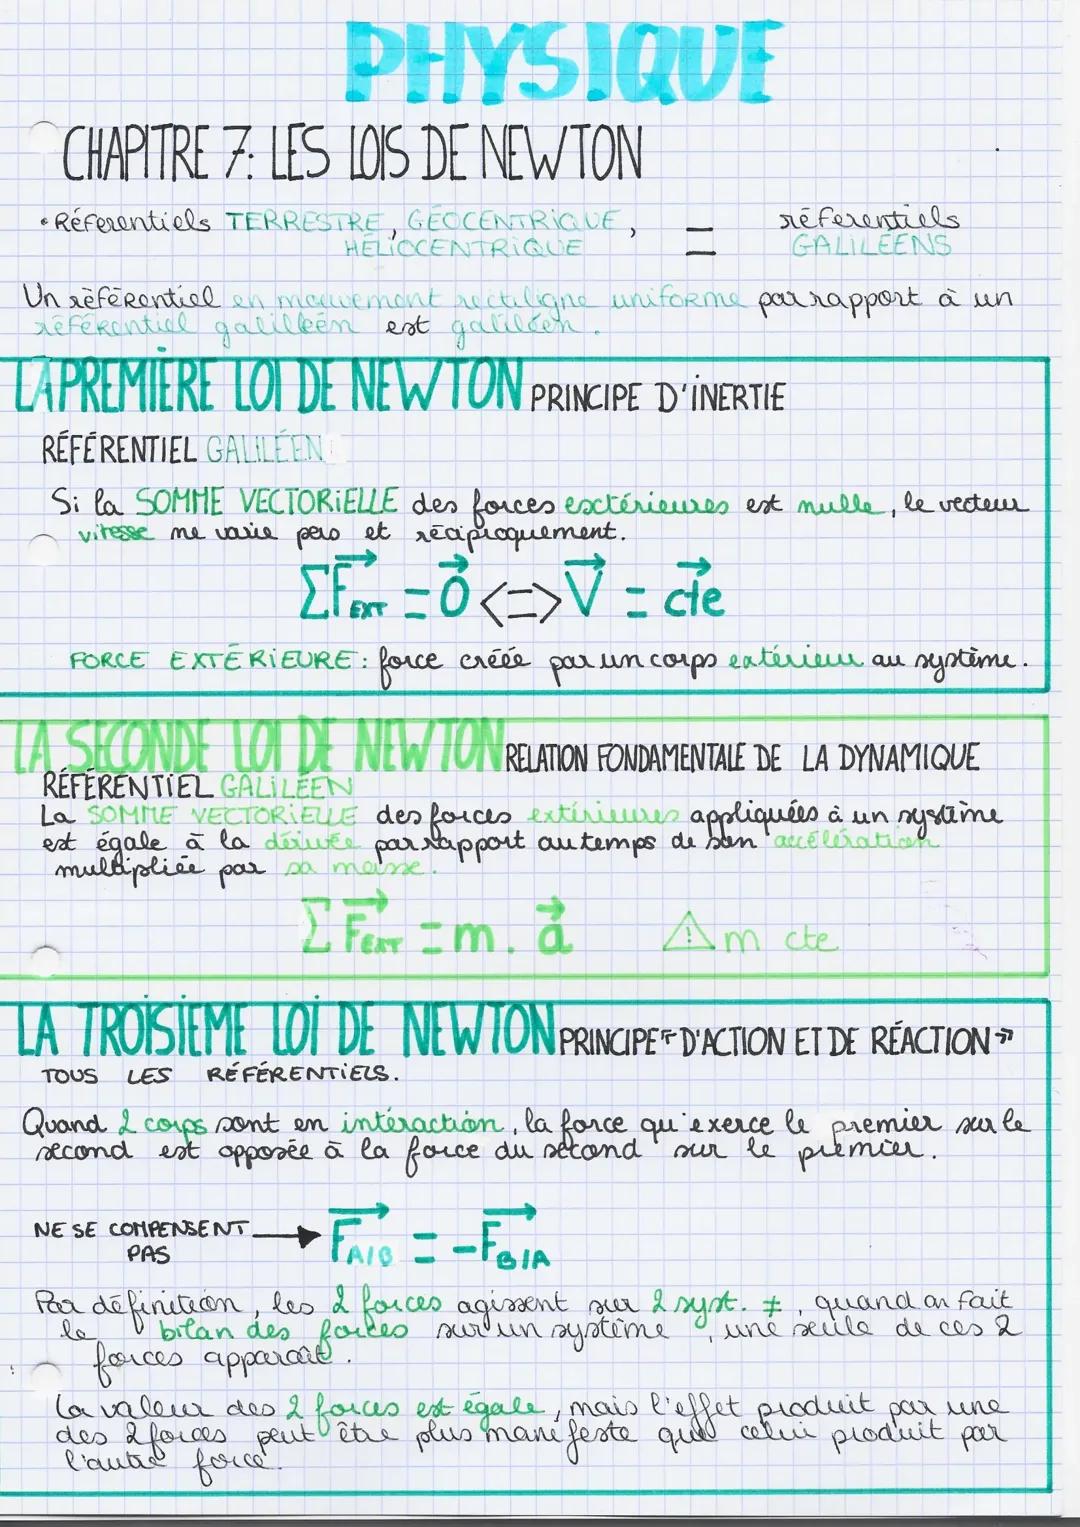 PHYSIQUE
CHAPITRE 7: LES LOIS DE NEWTON
• Référentiels TERRESTRE, GÉOCENTRIQUE, = référentiels
HÉLIOCENTRIQUE GALILÉENS
Un référentiel en mouvement rectiligne uniforme par rapport à un
référentiel galilléen est galiléen.
LA PREMIÈRE LOI DE NEWTON PRINCIPE D'INERTIE
RÉFÉRENTIEL GALILÉEN
Si la SOMME VECTORIELLE des forces exctérieures est nulle, le vecteur
vitesse ne varie pas et réciproquement.
ΣF⃗EXT = 0⃗ <=> V⃗ = cte⃗
FORCE EXTÉRIEURE: force créée par un corps extérieur au système.
LA SECONDE LOI DE NEWTON RELATION FONDAMENTALE DE LA DYNAMIQUE
RÉFÉRENTIEL GALILÉEN
La SOMME VECTORIELLE des forces extérieures appliquées à un système
est égale à la dérivée par rapport au temps de son accélération
multipliée par sa masse.
ΣF⃗EXT = m . a⃗ ⚠ m cte
LA TROISIÈME LOI DE NEWTON PRINCIPE « D'ACTION ET DE RÉACTION »
TOUS LES RÉFÉRENTIELS.
Quand 2 corps sont en intéraction, la force qu'exerce le premier sur le
second est opposée à la force du second sur le premier.
NE SE COMPENSENT → F⃗A/B = -F⃗B/A
PAS
Par définition, les 2 forces agissent sur 2 syst. ≠, quand on fait
le bilan des forces sur un système, une seule de ces 2
forces apparaît.
La valeur des 2 forces est égale, mais l'effet produit par une
des 2 forces peut être plus manifeste que celui produit par
l'autre force.